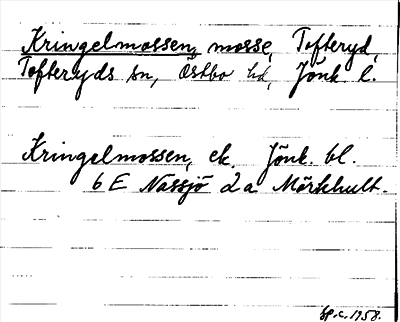 Kringelmossen, mosse, Tofteryd,
Tofteryds sn, Östbo hd, Jönk. l.
Kringelmossen, ek. Jönk. bl.
6 E Nässjö 2 a Mörkhult.
Sp.c. 1958.